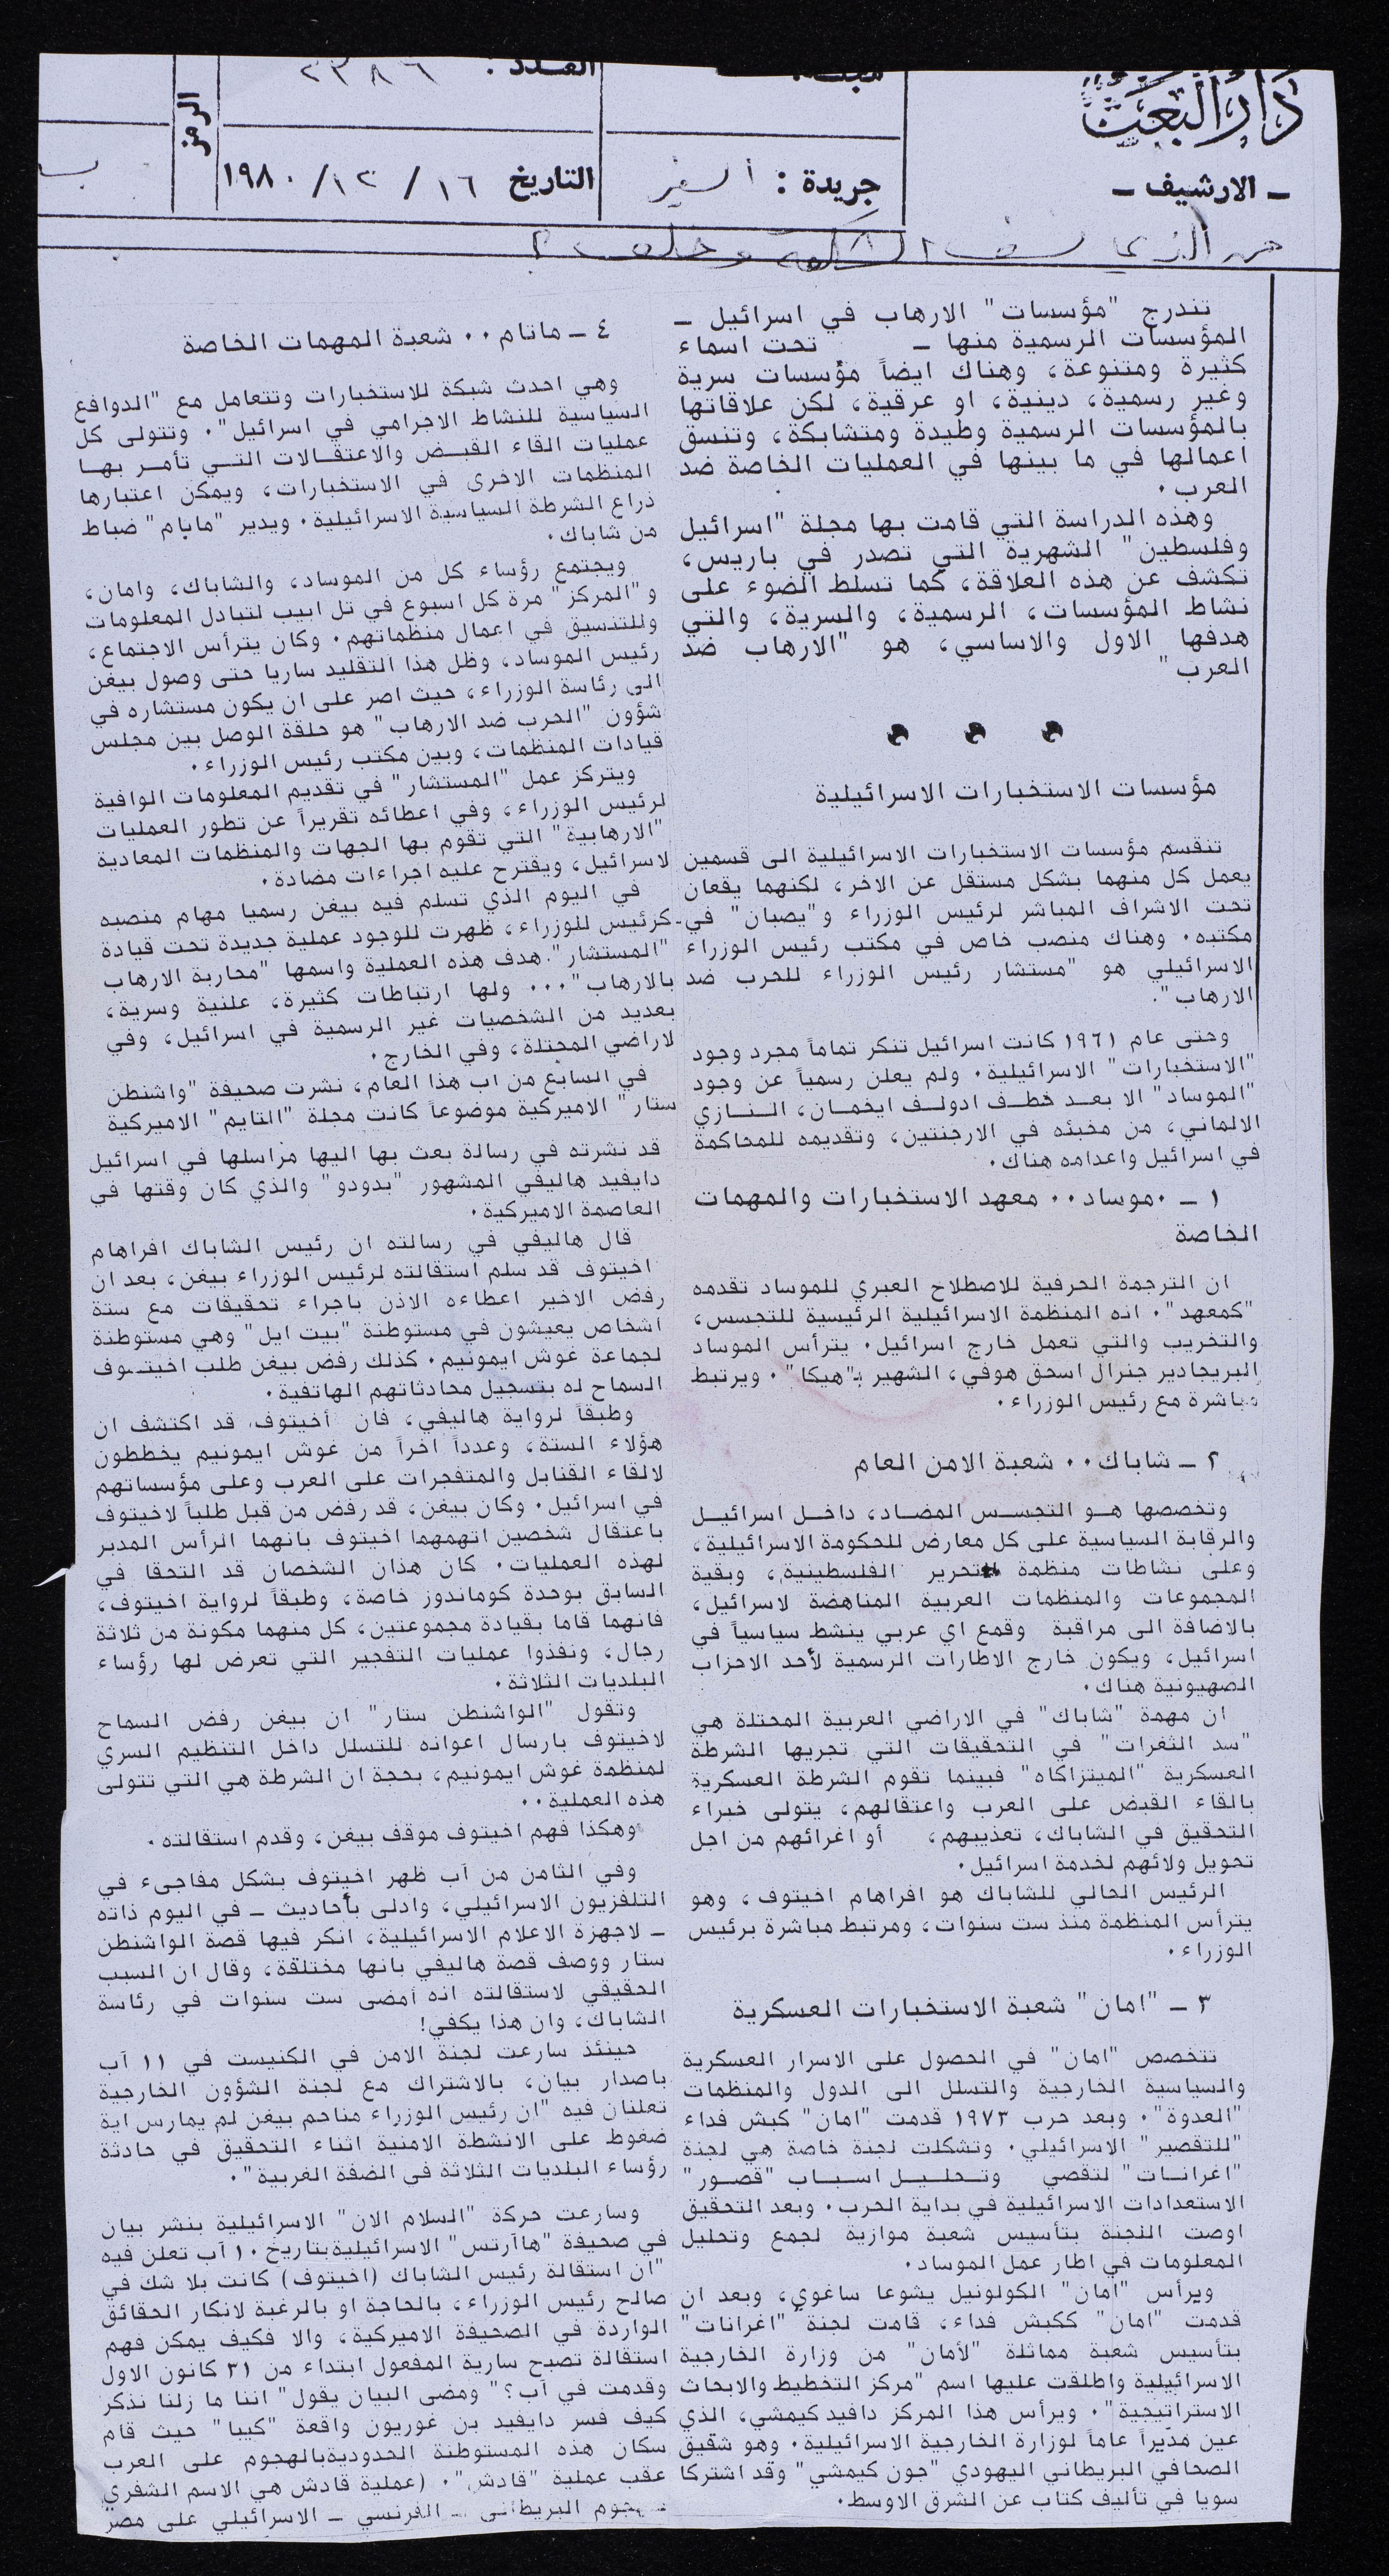 دار البعث
ـ الارشيف ـ
جريدة : السفير
العدد : ٢٣٨٦
التاريخ ١٦ / ١٢ / ١٩٨٠
الرمز
من الذي نسف الشكعة وخلف ؟
تندرج "مؤسسات" الارهاب في اسرائيل ـ
المؤسسات الرسمية منها ـ تحت اسماء
كثيرة ومتنوعة، وهناك ايضاً مؤسسات سرية
وغير رسمية، دينية، او عرقية، لكن علاقاتها
بالمؤسسات الرسمية وطيدة ومتشابكة، وتنسق
اعمالها في ما بينها في العمليات الخاصة ضد
العرب.
وهذه الدراسة التي قامت بها مجلة "اسرائيل
وفلسطين" الشهرية التي تصدر في باريس،
تكشف عن هذه العلاقة، كما تسلط الضوء على
نشاط المؤسسات، الرسمية، والسرية، والتي
هدفها الاول والاساسي، هو "الارهاب ضد
العرب"
مؤسسات الاستخبارات الاسرائيلية
تنقسم مؤسسات الاستخبارات الاسرائيلية الى قسمين
يعمل كل منهما بشكل مستقل عن الاخر، لكنهما يقعان
تحت الاشراف المباشر لرئيس الوزراء و"يصبان" في
مكتبه. وهناك منصب خاص في مكتب رئيس الوزراء
الاسرائيلي هو "مستشار رئيس الوزراء للحرب ضد
الارهاب".
وحتى عام ١٩٦١ كانت اسرائيل تنكر تماماً مجرد وجود
"الاستخبارات" الاسرائيلية. ولم يعلن رسمياً عن وجود
"الموساد" الا بعد خطف ادولف ايخمان، النازي
الالماني، من مخبئه في الارجنتين، وتقديمه للمحاكمة
في اسرائيل واعدامه هناك.
١ ـ ٠موساد٠٠ معهد الاستخبارات والمهمات
الخاصة
ان الترجمة الحرفية للاصطلاح العبري للموساد تقدمه
"كمعهد". انه المنظمة الاسرائيلية الرئيسية للتجسس،
والتخريب والتي تعمل خارج اسرائيل. يترأس الموساد
البريجادير جنرال اسحق هوفي، الشهير بـ"هيكا". ويرتبط
مباشرة مع رئيس الوزراء.
٢ ـ شاباك٠٠ شعبة الامن العام
وتخصصها هو التجسس المضاد، داخل اسرائيل
والرقابة السياسية على كل معارض للحكومة الاسرائيلية،
وعلى نشاطات منظمة التحرير الفلسطينية، وبقية
المجموعات والمنظمات العربية المناهضة لاسرائيل،
بالاضافة الى مراقبة وقمع اي عربي ينشط سياسياً في
اسرائيل، ويكون خارج الاطارات الرسمية لأحد الاحزاب
الصهيونية هناك.
ان مهمة "شاباك" في الاراضي العربية المحتلة هي
"سد الثغرات" في التحقيقات التي تجريها الشرطة
العسكرية "الميتزاكاه" فبينما تقوم الشرطة العسكرية
بالقاء القبض على العرب واعتقالهم، يتولى خبراء
التحقيق في الشاباك، تعذيبهم، أو اغرائهم من اجل
تحويل ولائهم لخدمة اسرائيل.
الرئيس الحالي للشاباك هو افراهام اخيتوف، وهو
يترأس المنظمة منذ ست سنوات، ومرتبط مباشرة برئيس
الوزراء.
٣ ـ "امان" شعبة الاستخبارات العسكرية
تتخصص "امان" في الحصول على الاسرار العسكرية
والسياسية الخارجية والتسلل الى الدول والمنظمات
"العدوة". وبعد حرب ١٩٧٣ قدمت "امان" كبش فداء
"للتقصير" الاسرائيلي. وتشكلت لجنة خاصة هي لجنة
"اغرانات" لتقصي وتحليل اسباب "قصور"
الاستعدادات الاسرائيلية في بداية الحرب. وبعد التحقيق
اوصت اللجنة بتأسيس شعبة موازية لجمع وتحليل
المعلومات في اطار عمل الموساد.
ويرأس "امان" الكولونيل يشوعا ساغوي، وبعد ان
قدمت "امان" ككبش فداء، قامت لجنة "اغرانات"
بتأسيس شعبة مماثلة "لأمان" من وزارة الخارجية
الاسرائيلية واطلقت عليها اسم "مركز التخطيط والابحاث
الاستراتيجية". ويرأس هذا المركز دافيد كيمشي، الذي
عين مديراً عاماً لوزارة الخارجية الاسرائيلية. وهو شقيق
الصحافي البريطاني اليهودي "جون كيمشي" وقد اشتركا
سويا في تأليف كتاب عن الشرق الاوسط.
٤ ـ ماتام٠٠ شعبة المهمات الخاصة
وهي احدث شبكة للاستخبارات وتتعامل مع "الدوافع
السياسية للنشاط الاجرامي في اسرائيل". وتتولى كل
عمليات القاء القبض والاعتقالات التي تأمر بها
المنظمات الاخرى في الاستخبارات، ويمكن اعتبارها
ذراع الشرطة السياسية الاسرائيلية. ويدير "ماتام" ضباط
من شاباك.
ويجتمع رؤساء كل من الموساد، والشاباك، وامان،
و"المركز" مرة كل اسبوع في تل ابيب لتبادل المعلومات
وللتنسيق في اعمال منظماتهم. وكان يترأس الاجتماع،
رئيس الموساد، وظل هذا التقليد ساريا حتى وصول بيغن
الى رئاسة الوزراء، حيث اصر على ان يكون مستشاره في
شؤون "الحرب ضد الارهاب" هو حلقة الوصل بين مجلس
قيادات المنظمات، وبين مكتب رئيس الوزراء.
ويتركز عمل "المستشار" في تقديم المعلومات الوافية
لرئيس الوزراء، وفي اعطائه تقريراً عن تطور العمليات
"الارهابية" التي تقوم بها الجهات والمنظمات المعادية
لاسرائيل، ويقترح عليه اجراءات مضادة.
في اليوم الذي تسلم فيه بيغن رسميا مهام منصبه
كرئيس للوزراء، ظهرت للوجود عملية جديدة تحت قيادة
"المستشار". هدف هذه العملية واسمها "محاربة الارهاب
بالارهاب"... ولها ارتباطات كثيرة، علنية وسرية،
بعديد من الشخصيات غير الرسمية في اسرائيل، وفي
لاراضي المحتلة، وفي الخارج.
في السابع من اب هذا العام، نشرت صحيفة "واشنطن
ستار" الاميركية موضوعاً كانت مجلة "التايم" الاميركية
قد نشرته في رسالة بعث بها اليها مراسلها في اسرائيل
دايفيد هاليفي المشهور "بدودو" والذي كان وقتها في
العاصمة الاميركية.
قال هاليفي في رسالته ان رئيس الشاباك افراهام
اخيتوف قد سلم استقالته لرئيس الوزراء بيغن، بعد ان
رفض الاخير اعطاءه الاذن باجراء تحقيقات مع ستة
اشخاص يعيشون في مستوطنة "بيت ايل" وهي مستوطنة
لجماعة غوش ايمونيم. كذلك رفض بيغن طلب اخيتوف
السماح له بتسجيل محادثاتهم الهاتفية.
وطبقاً لرواية هاليفي، فان أخيتوف، قد اكتشف ان
هؤلاء الستة، وعدداً اخراً من غوش ايمونيم يخططون
لالقاء القنابل والمتفجرات على العرب وعلى مؤسساتهم
في اسرائيل. وكان بيغن، قد رفض من قبل طلباً لاخيتوف
باعتقال شخصين اتهمهما اخيتوف بانهما الرأس المدبر
لهذه العمليات. كان هذان الشخصان قد التحقا في
السابق بوحدة كوماندوز خاصة، وطبقاً لرواية اخيتوف،
فانهما قاما بقيادة مجموعتين، كل منهما مكونة من ثلاثة
رجال، ونفذوا عمليات التفجير التي تعرض لها رؤساء
البلديات الثلاثة.
وتقول "الواشنطن ستار" ان بيغن رفض السماح
لاخيتوف بارسال اعوانه للتسلل داخل التنظيم السري
لمنظمة غوش ايمونيم، بحجة ان الشرطة هي التي تتولى
هذه العملية..
وهكذا فهم اخيتوف موقف بيغن، وقدم استقالته.
وفي الثامن من آب ظهر اخيتوف بشكل مفاجىء في
التلفزيون الاسرائيلي، وادلى بأحاديث ـ في اليوم ذاته
ـ لاجهزة الاعلام الاسرائيلية، انكر فيها قصة الواشنطن
ستار ووصف قصة هاليفي بانها مختلقة، وقال ان السبب
الحقيقي لاستقالته انه أمضى ست سنوات في رئاسة
الشاباك، وان هذا يكفي!
حينئذ سارعت لجنة الامن في الكنيست في ١١ آب
باصدار بيان، بالاشتراك مع لجنة الشؤون الخارجية
تعلنان فيه "ان رئيس الوزراء مناحم بيغن لم يمارس اية
ضغوط على الانشطة الامنية اثناء التحقيق في حادثة
رؤساء البلديات الثلاثة في الضفة الغربية".
وسارعت حركة "السلام الان" الاسرائيلية بنشر بيان
في صحيفة "هاآرتس" الاسرائيلية بتاريخ ١٠ آب تعلن فيه
"ان استقالة رئيس الشاباك (اخيتوف) كانت بلا شك في
صالح رئيس الوزراء، بالحاجة او بالرغبة لانكار الحقائق
الواردة في الصحيفة الاميركية، والا فكيف يمكن فهم
استقالة تصبح سارية المفعول ابتداء من ٣١ كانون الاول
وقدمت في آب؟" ومضى البيان يقول" اننا ما زلنا نذكر
كيف فسر دايفيد بن غوريون واقعة "كيبا" حيث قام
سكان هذه المستوطنة الحدودية بالهجوم على العرب
عقب عملية "قادش". (عملية قادش هي الاسم الشفري
للهجوم البريطاني ـ الفرنسي ـ الاسرائيلي على مصر